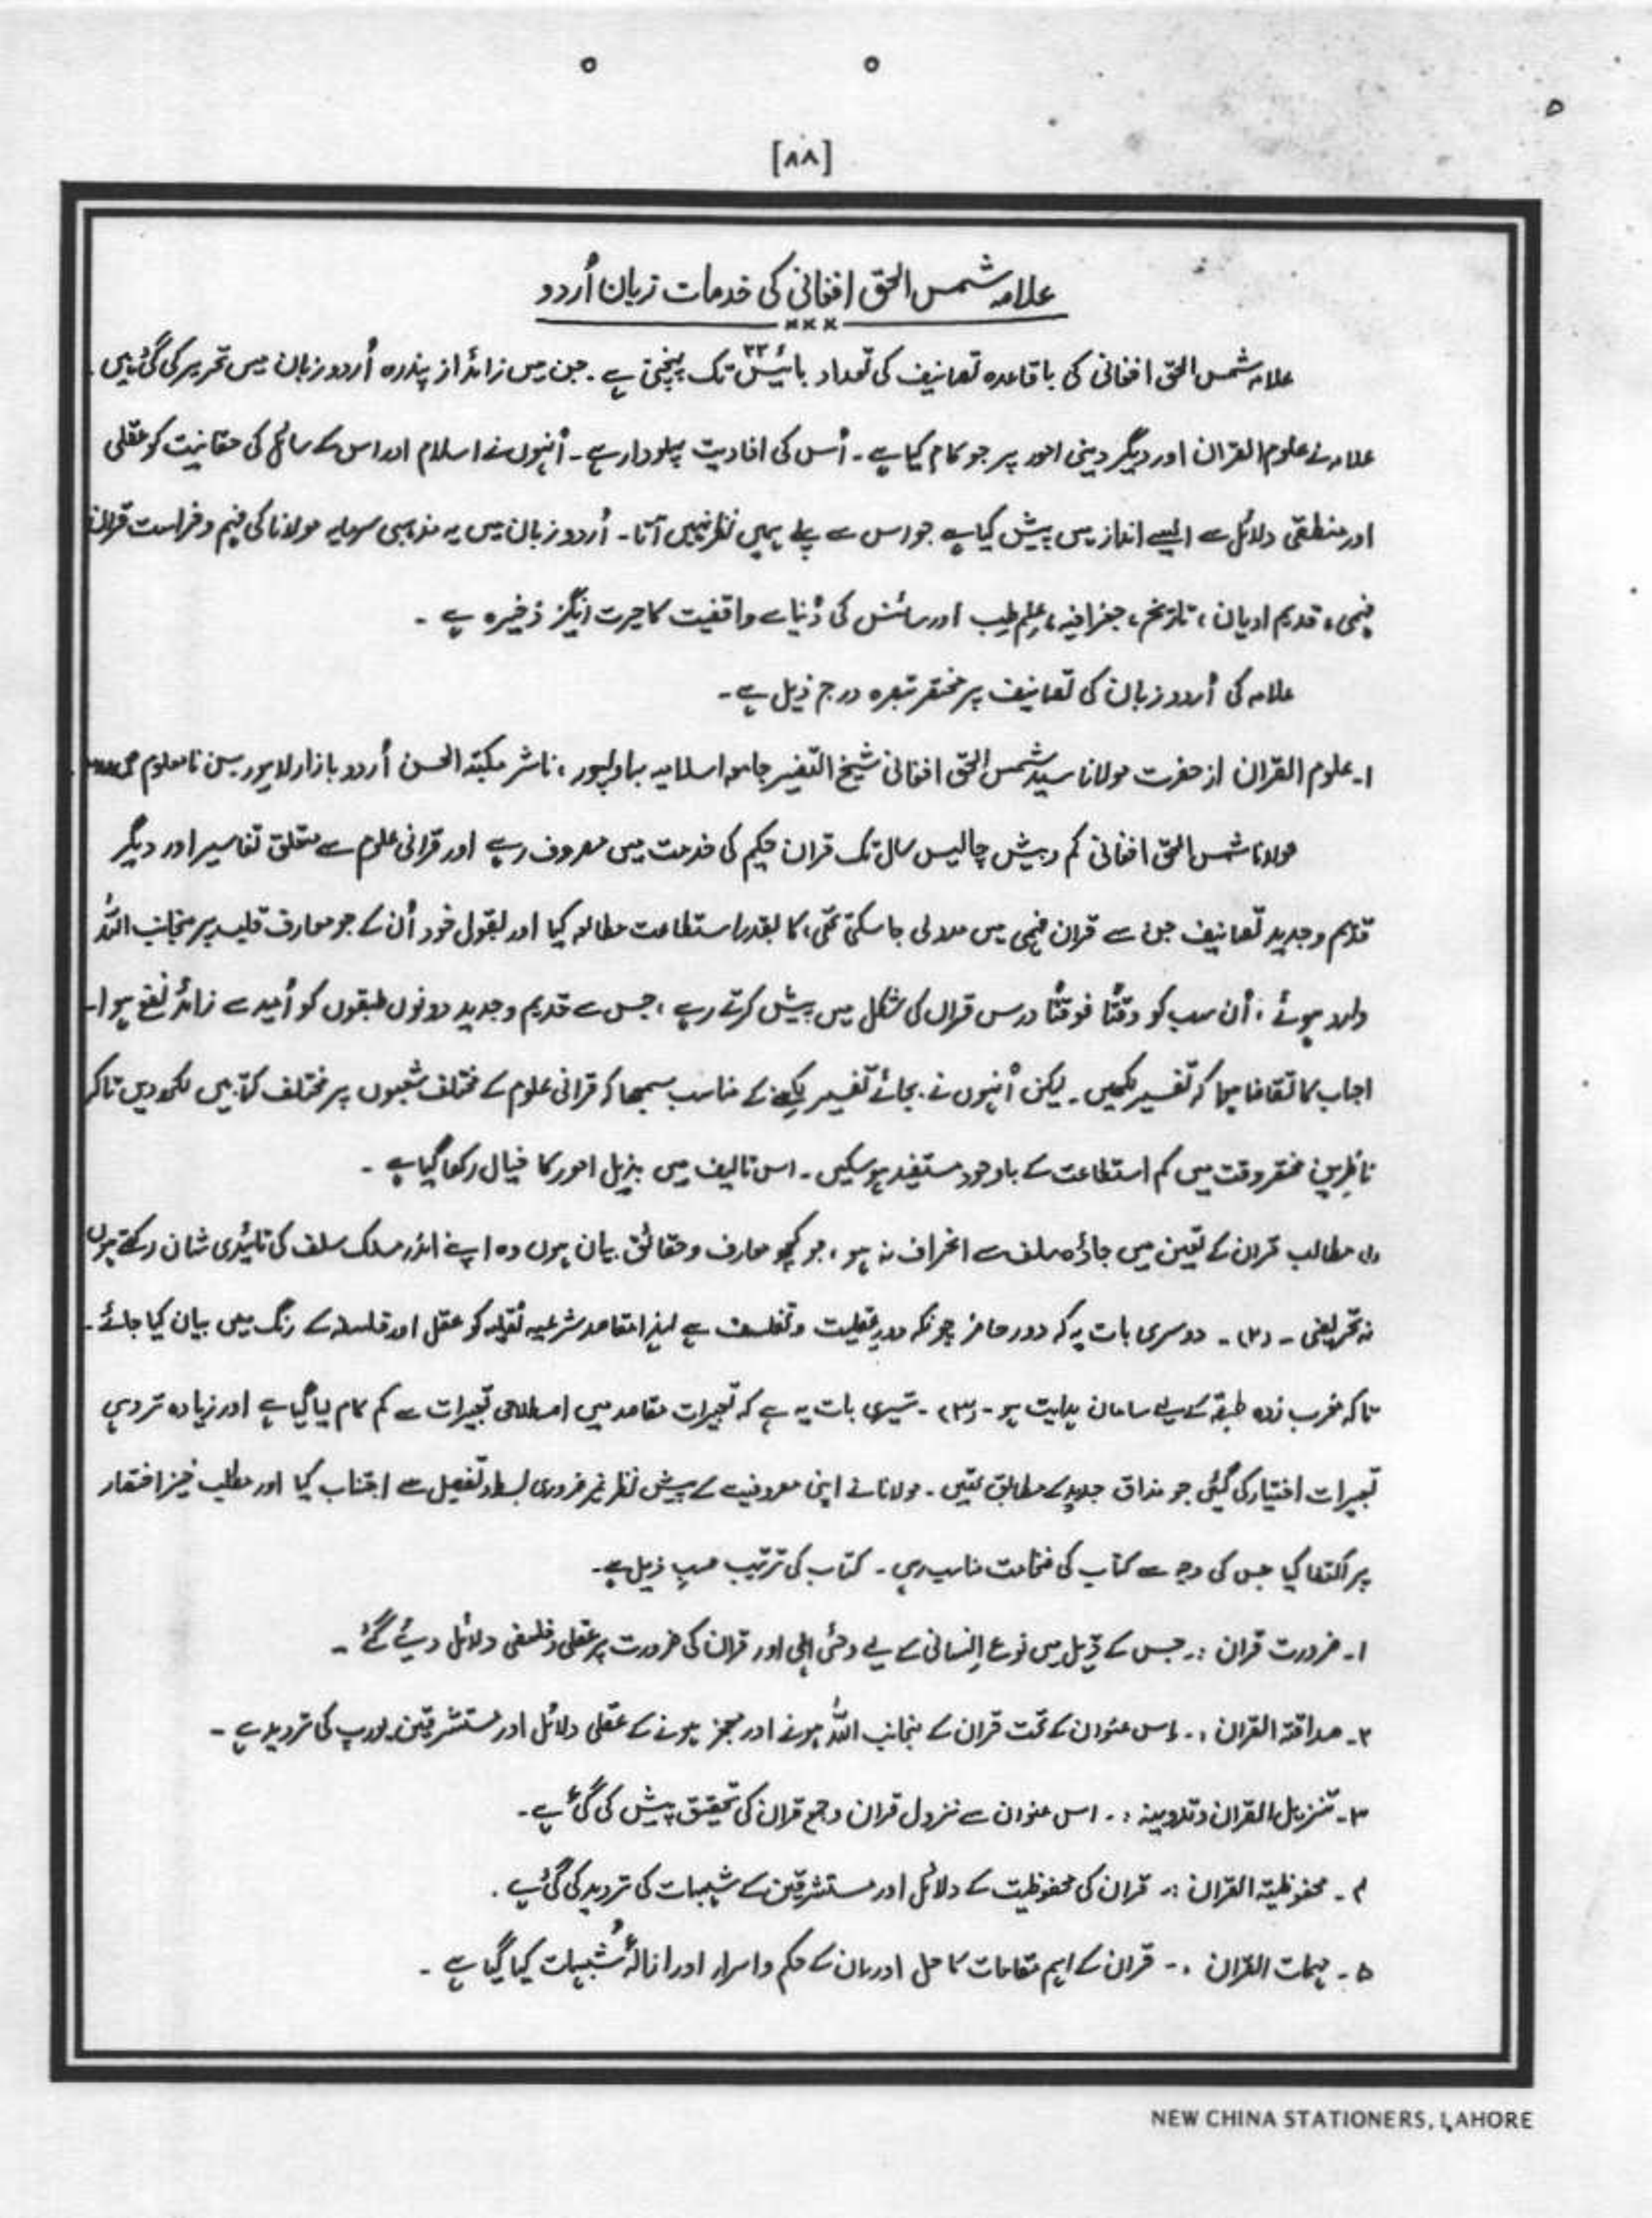 [۸۸]
علامہ شمس الحق افغانی کی خدمات زبان اُردو
×××
علامہ شمس الحق افغانی کی باقاعدہ تصانیف کی تعداد بائیس ۲۲ تک پہنچتی ہے ۔ جن میں زائد از پندرہ اُردو زبان میں تحریر کی گئی ہیں ۔
علامہ نے علوم القرآن اور دیگر دینی امور پر جو کام کیا ہے ۔ اُس کی افادیت پہلودار ہے ۔ اُنہوں نے اسلام اور اس کے مسائل کی حقانیت کو عقلی
اور منطقی دلائل سے ایسے انداز میں پیش کیا ہے جو اس سے پہلے ہمیں نظر نہیں آتا ۔ اُردو زبان میں یہ مذہبی سرمایہ مولانا کی فہم و فراست قرآن
فہمی ، قدیم ادیان ، تاریخ ، جغرافیہ ، علم طب اور سائنس کی دُنیا سے واقفیت کا حیرت انگیز ذخیرہ ہے ۔
علامہ کی اُردو زبان کی تصانیف پر مختصر تبصرہ درج ذیل ہے ۔
۱۔ علوم القرآن از حضرت مولانا سید شمس الحق افغانی شیخ التفسیر جامعہ اسلامیہ بہاولپور ، ناشر مکتبہ الحسن اُردو بازار لاہور سن نامعلوم ص
مولانا شمس الحق افغانی کم و بیش چالیس سال تک قرآن حکیم کی خدمت میں مصروف رہے اور قرآنی علوم سے متعلق تفاسیر اور دیگر
قدیم و جدید تصانیف جن سے قرآن فہمی میں مدد لی جا سکتی تھی ، کا بقدر استطاعت مطالعہ کیا اور بقول خود اُن کے جو معارف قلب پر منجانب اللہ
وارد ہوئے ، اُن سب کو وقتاً فوقتاً درس قرآن کی شکل میں پیش کرتے رہے ، جس سے قدیم و جدید دونوں طبقوں کو اُمید سے زائد نفع ہوا ۔
احباب کا تقاضا ہوا کہ تفسیر لکھیں ۔ لیکن اُنہوں نے بجائے تفسیر لکھنے کے مناسب سمجھا کہ قرآنی علوم کے مختلف شعبوں پر مختلف کتابیں لکھ دیں تاکہ
ناظرین مختصر وقت میں کم استطاعت کے باوجود مستفید ہو سکیں ۔ اس تالیف میں بذیل امور کا خیال رکھا گیا ہے ۔
(۱) مطالب قرآن کے تعین میں جادۂ سلف سے انحراف نہ ہو ، جو کچھ معارف و حقائق بیان ہوں وہ اپنے اندر مسلک سلف کی تائیدی شان رکھتے ہوں
نہ تحریفی ۔ (۲) ۔ دوسری بات یہ کہ دور حاضر چونکہ دور عقلیت و تفلسف ہے لہذا مقاصد شرعیہ نقلیہ کو عقل اور فلسفہ کے رنگ میں بیان کیا جائے ۔
تاکہ مغرب زدہ طبقہ کے لیے سامان ہدایت ہو ۔ (۳) ۔ تیسری بات یہ ہے کہ تعبیرات مقاصد میں اصطلاحی تعبیرات سے کم کام لیا گیا ہے اور زیادہ تر وہی
تعبیرات اختیار کی گئی جو مذاق جدید کے مطابق تھیں ۔ مولانا نے اپنی مصروفیت کے پیش نظر غیر ضروری بسط و تفصیل سے اجتناب کیا اور مطلب خیز اختصار
پر اکتفا کیا جس کی وجہ سے کتاب کی ضخامت مناسب رہی ۔ کتاب کی ترتیب حسب ذیل ہے ۔
۱۔ ضرورت قرآن :۔ جس کے ذیل میں نوع انسانی کے لیے وحئی الہی اور قرآن کی ضرورت پر عقلی و فلسفی دلائل دیئے گئے ۔
۲۔ صداقۃ القرآن :۔ اس عنوان کے تحت قرآن کے منجانب اللہ ہونے اور معجز ہونے کے عقلی دلائل اور مستشرقین یورپ کی تردید ہے ۔
۳۔ تنزیل القرآن و تدوینہ :۔ اس عنوان سے نزول قرآن و جمع قرآن کی تحقیق پیش کی گئی ہے ۔
۴۔ محفوظیۃ القرآن :۔ قرآن کی محفوظیت کے دلائل اور مستشرقین کے شبہات کی تردید کی گئی ہے ۔
۵۔ مہمات القرآن :۔ قرآن کے اہم مقامات کا حل اور ان کے حکم و اسرار اور ازالۂ شُبہات کیا گیا ہے ۔
NEW CHINA STATIONERS, LAHORE